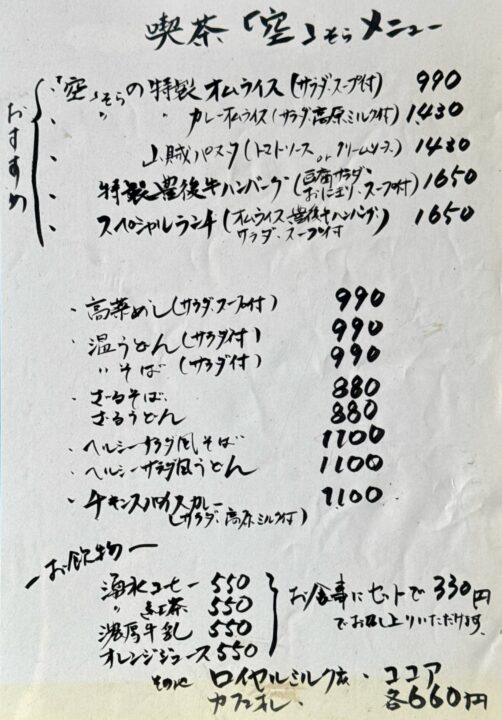 喫茶「空」そらメニュー
おすすめ
・「空」そらの特製オムライス(サラダ、スープ付) 990
・ 〃 〃 カレーオムライス(サラダ、高原ミルク付) 1430
・ 山賊パスタ(トマトソース or クリームソース) 1430
・ 特製豊後牛ハンバーグ(豆腐サラダ、おにぎり、スープ付) 1650
・ スペシャルランチ(オムライス、豊後牛ハンバーグ、サラダ、スープ付) 1650
・高菜めし(サラダ、スープ付) 990
・温うどん(サラダ付) 990
〃そば(サラダ付) 990
・ざるそば 880
ざるうどん 880
・ヘルシーサラダ風そば 1100
・ヘルシーサラダ風うどん 1100
・チキンスパイスカレー 1100
(サラダ、高原ミルク付)
ーお飲物ー
湧水コーヒー 550
〃 紅茶 550
濃厚牛乳 550
オレンジジュース 550
お食事にセットで330円
でお召し上りいただけます。
その他 ロイヤルミルクティ・ココア
カフェオレ・ 各660円